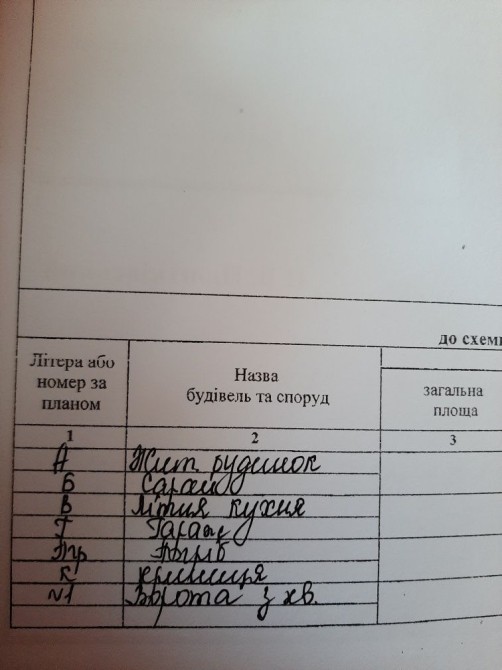 до схеми
Літера або номер за планом
Назва будівель та споруд
загальна площа
1 2 3
А Жит. будинок
Б Сарай
В Літня кухня
Г Гараж
Пг Погріб
К криниця
№1 Ворота з хв.